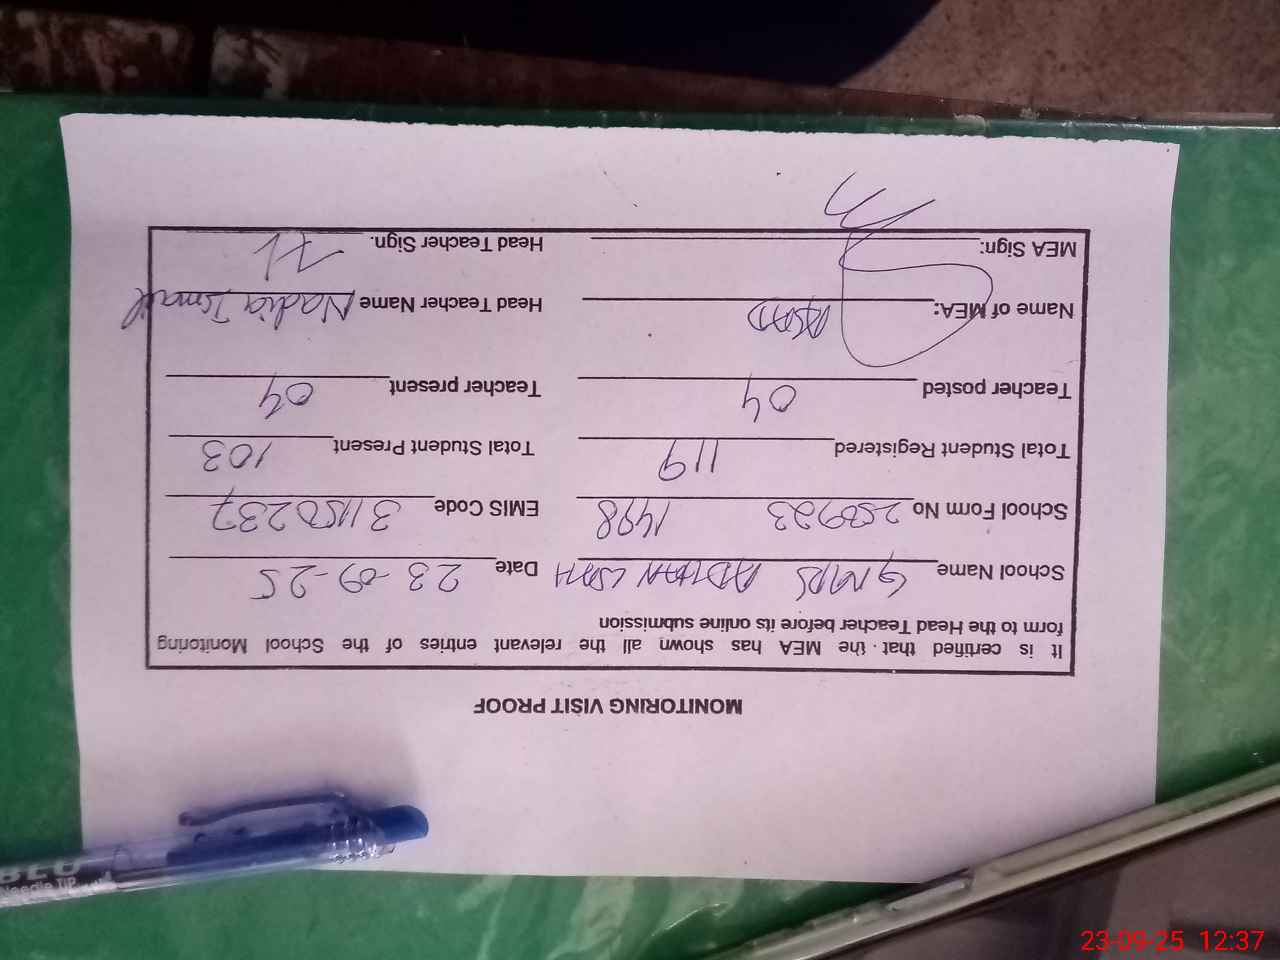 MONITORING VISIT PROOF
It is certified that the MEA has shown all the relevant entries of the School Monitoring
form to the Head Teacher before its online submission
School Name GMPS Date 23-09-25
School Form No 250923 1498 EMIS Code 31150237
Total Student Registered 119 Total Student Present 103
Teacher posted 04 Teacher present 04
Name of MEA: ASAD Head Teacher Name Nadia Ismail
MEA Sign: Head Teacher Sign.
Needle TIP
23-09-25 12:37